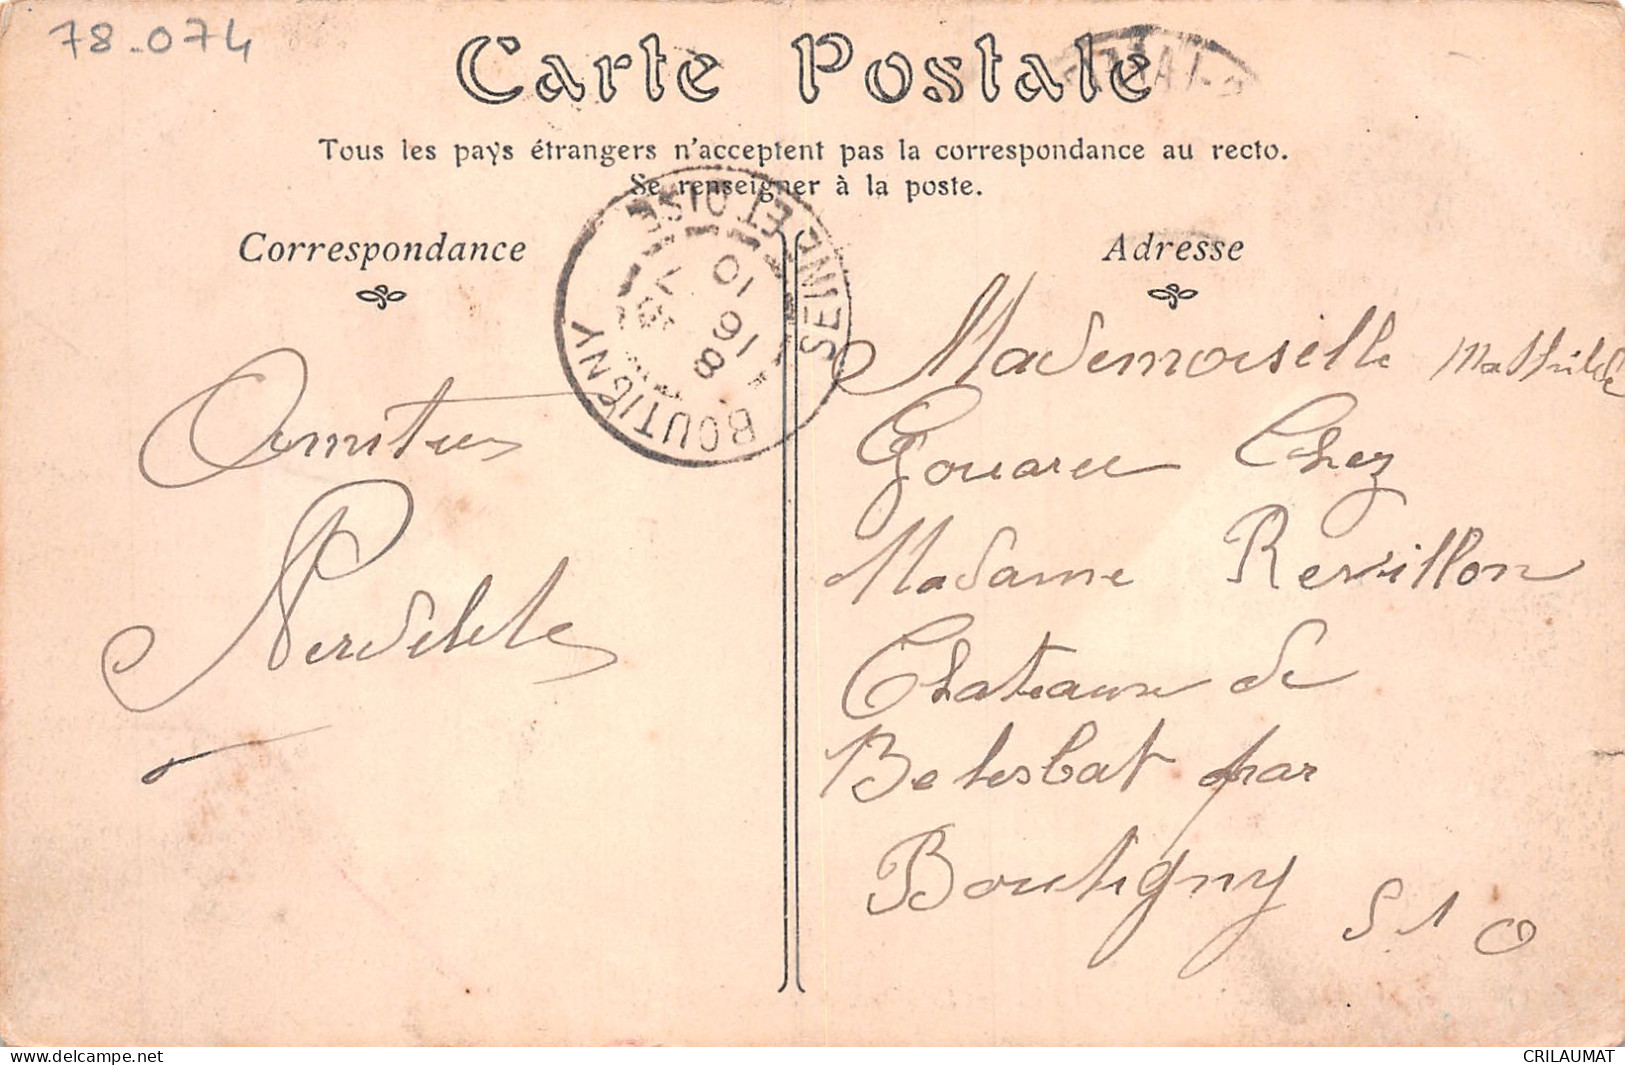 78-074
Carte Postale
Tous les pays étrangers n'acceptent pas la correspondance au recto.
Se renseigner à la poste.
Correspondance
Adresse
BOUTIGNY
SEINE ET OISE
Mademoiselle Mathilde
Chez
Madame Revillon
Chateaux de
Belesbat par
Boutigny
S / O
CRILAUMAT